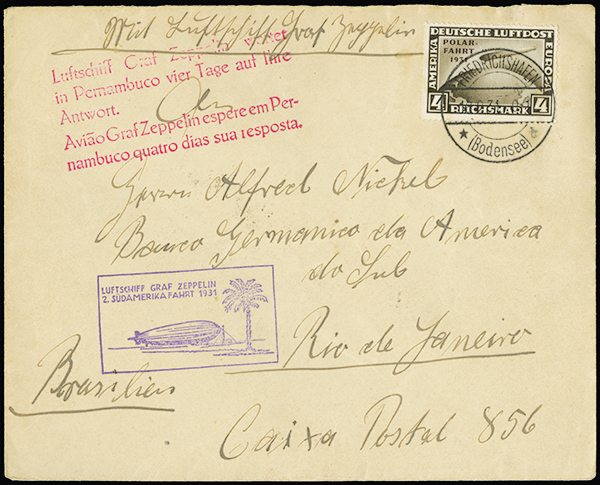 Mit Luftschiff Graf Zeppelin
DEUTSCHE LUFTPOST
AMERIKA
EUROPA
POLAR-
FAHRT
4
4
REICHSMARK
FRIEDRICHSHAFEN
(Bodensee)
Luftschiff Graf Zeppelin wartet
in Pernambuco vier Tage auf Ihre
Antwort.
Avião Graf Zeppelin espere em Per-
nambuco quatro dias sua resposta.
An
Herrn Alfred Nickel
Banco Germanico da America
do Sul
LUFTSCHIFF GRAF ZEPPELIN
2. SÜDAMERIKAFAHRT 1931
Rio de Janeiro
Brasilien
Caixa Postal 856